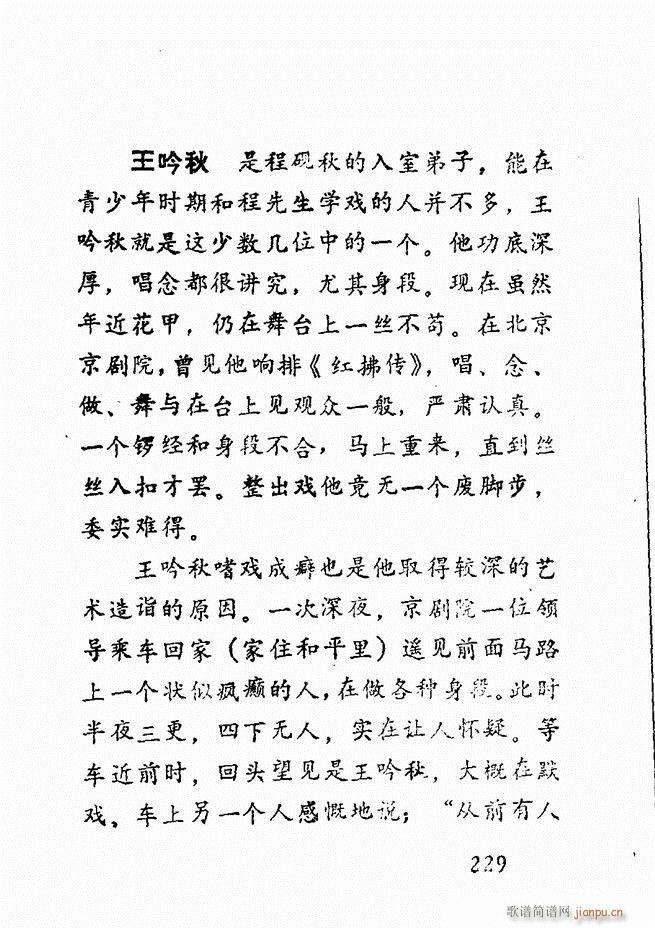 王吟秋 是程砚秋的入室弟子，能在
青少年时期和程先生学戏的人并不多，王
吟秋就是这少数几位中的一个。他功底深
厚，唱念都很讲究，尤其身段。现在虽然
年近花甲，仍在舞台上一丝不苟。在北京
京剧院，曾见他响排《红拂传》，唱、念、
做、舞与在台上见观众一般，严肃认真。
一个锣经和身段不合，马上重来，直到丝
丝入扣才罢。整出戏他竟无一个废脚步，
委实难得。
王吟秋嗜戏成癖也是他取得较深的艺
术造诣的原因。一次深夜，京剧院一位领
导乘车回家（家住和平里）遥见前面马路
上一个状似疯癫的人，在做各种身段。此时
半夜三更，四下无人，实在让人怀疑。等
车近前时，回头望见是王吟秋，大概在默
戏。车上另一个人感慨地说；“从前有人
229
歌谱简谱网 jianpu.cn